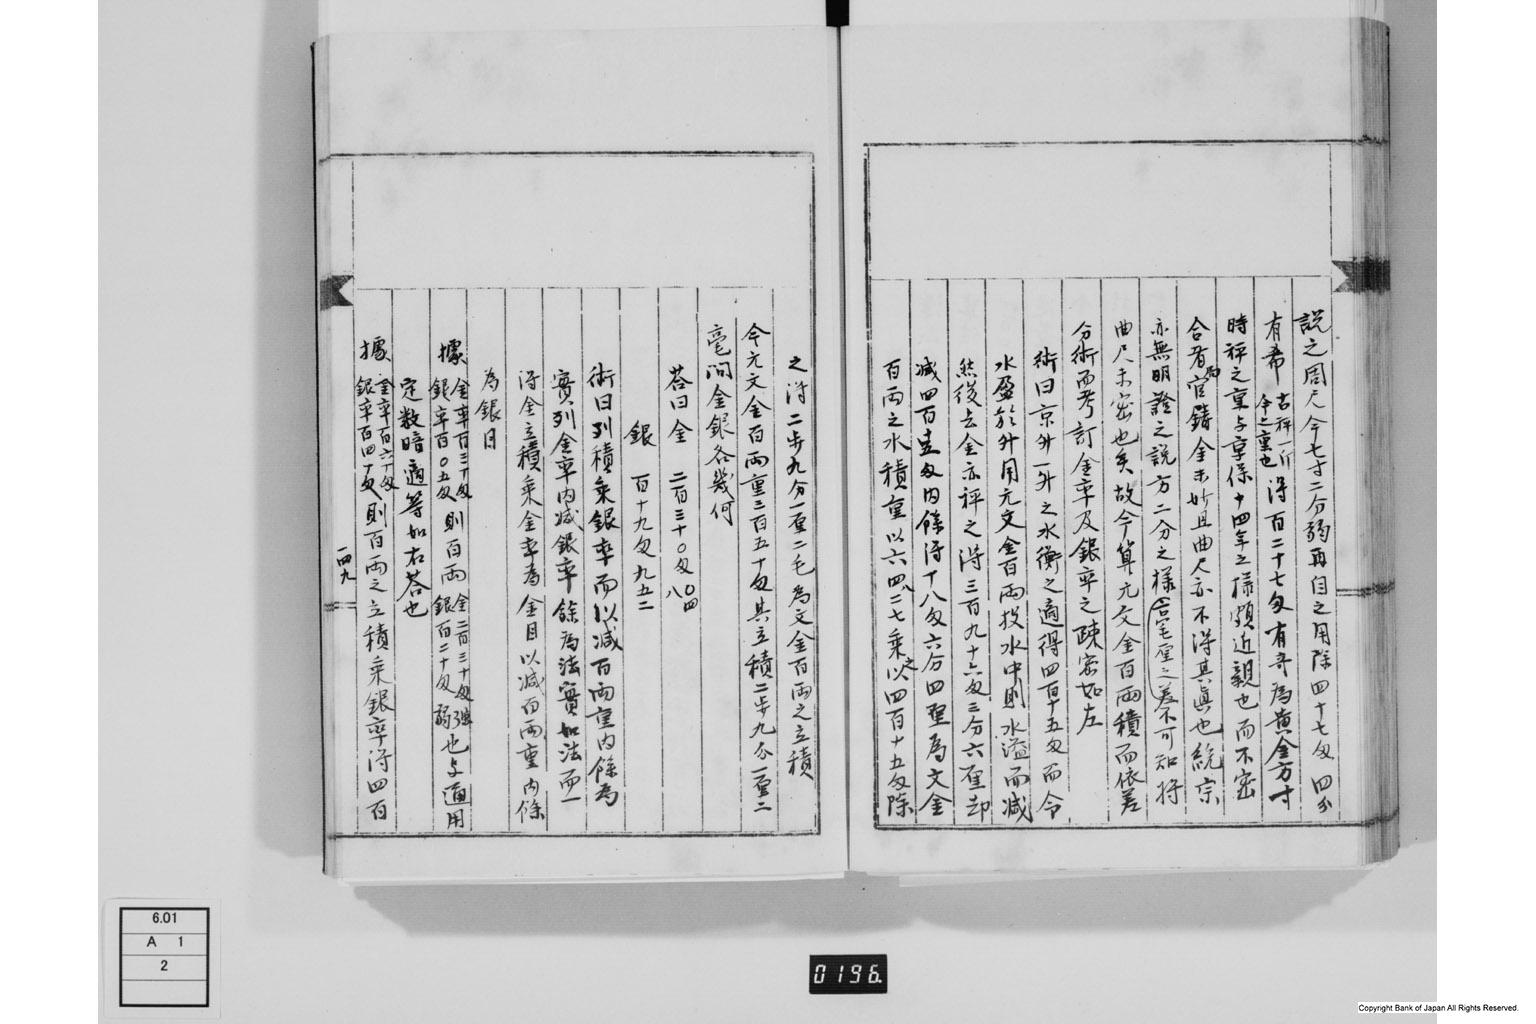 説之周尺今七寸二分弱再自之用除四十七匁四分
有奇 古秤一斤今之重也 得百二十七匁有奇為黄金方寸
時秤之重与享保十四年之様頗近親也而不密
合者官局鋳金未妙且曲尺亦不得其真也統宗
亦無明證之説方二分之様言毫厘之差不可知将
曲尺未密也矣故今算元文金百両積而依差
分術而考訂金率及銀率之疎密如左
術曰京升一升之水衡之適得四百十五匁而令
水盈於升用元文金百両投水中則水溢而減
然後去金亦秤之得三百九十六匁三分六厘却
減四百十五匁内餘得十八匁六分四厘為文金
百両之水積重以六四八二七乗之以四百十五匁除
之得二歩九分一厘二毛為文金百両之立積
今元文金百両重三百五十匁其立積二歩九分一厘二
毫問金銀各幾何
荅曰金 二百三十〇匁〇四八
銀 百十九匁九五二
術曰列積乗銀率而以減百両重内餘為
實列金率内減銀率餘為法實如法而一
得金立積乗金率為金目以減百両重内餘
為銀目
據 金率百三十匁 銀率百〇五匁 則百両 金二百三十匁強 銀百二十匁弱 也与通用
定数暗適等如右荅也
據 金率百六十匁 銀率百四十匁 則百両之立積乗銀率得四百
一四九
6.01
A 1
2
0196.
Copyright Bank of Japan All Rights Reserved.